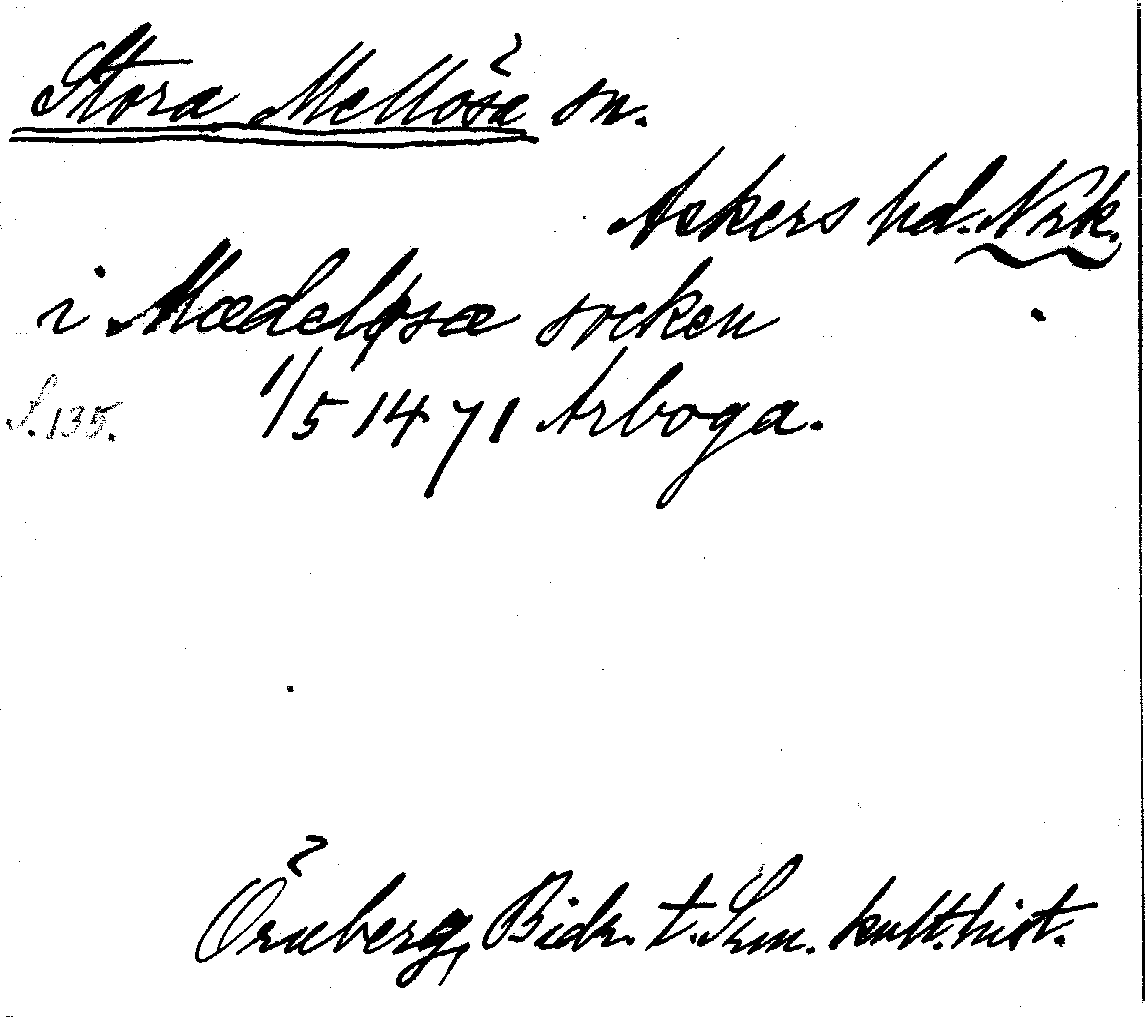 Stora Mellösa sn.
Askers hd. Nrk.
i Mædeløsæ socken
S. 135. 1/5 1471 Arboga.
Örneberg, Bidr. t. Srm. kult. hist.